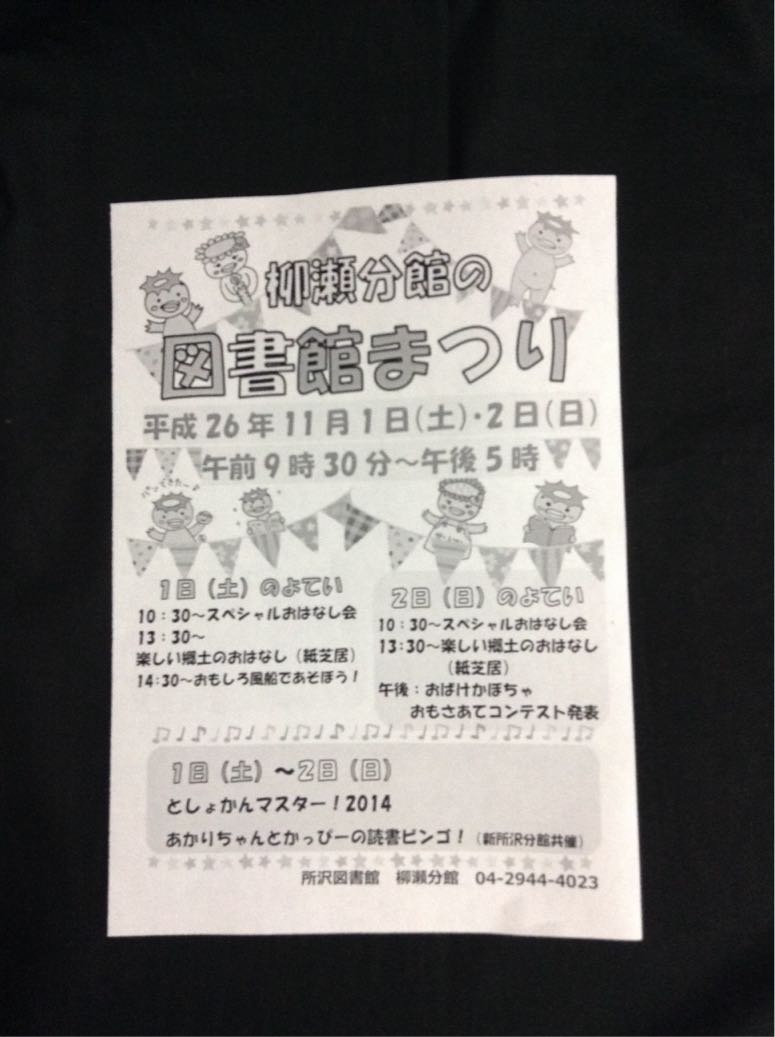 柳瀬分館の
図書館まつり
平成26年11月1日(土)・2日(日)
午前9時30分～午後5時
1日(土)のよてい
10:30～スペシャルおはなし会
13:30～
楽しい郷土のおはなし(紙芝居)
14:30～おもしろ風船であそぼう！
2日(日)のよてい
10:30～スペシャルおはなし会
13:30～楽しい郷土のおはなし
(紙芝居)
午後:おばけかぼちゃ
おもさあてコンテスト発表
1日(土)～2日(日)
としょかんマスター！2014
あかりちゃんとかっぴーの読書ビンゴ！(新所沢分館共催)
所沢図書館 柳瀬分館 04-2944-4023